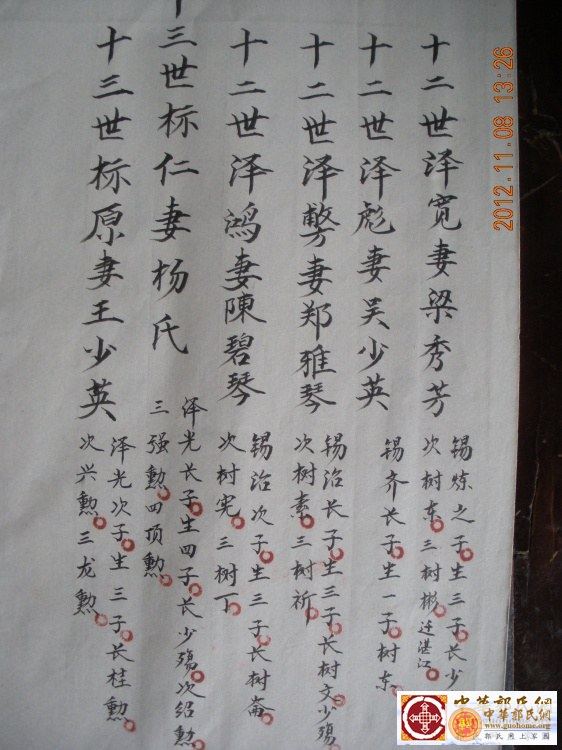 十二世泽宽妻梁秀芳
锡炼之子生三子长少
次树东三树彬迁湛江
十二世泽彪妻吴少英
锡齐长子生一子树东
十二世泽妻郑雅琴
锡治长子生三子长树文少殇
次树素三树祈
十二世泽鸿妻陳碧琴
锡治次子生三子长树崙
次树宪三树丁
十三世标仁妻杨氏
泽光长子生四子长少殇次绍勲
三强勲四顶勲
十三世标原妻王少英
泽光次子生三子长桂勲
次兴勲三龙勲
2012.11.08 13:26
中華郭氏網
www.guohome.com
郭氏網上家園